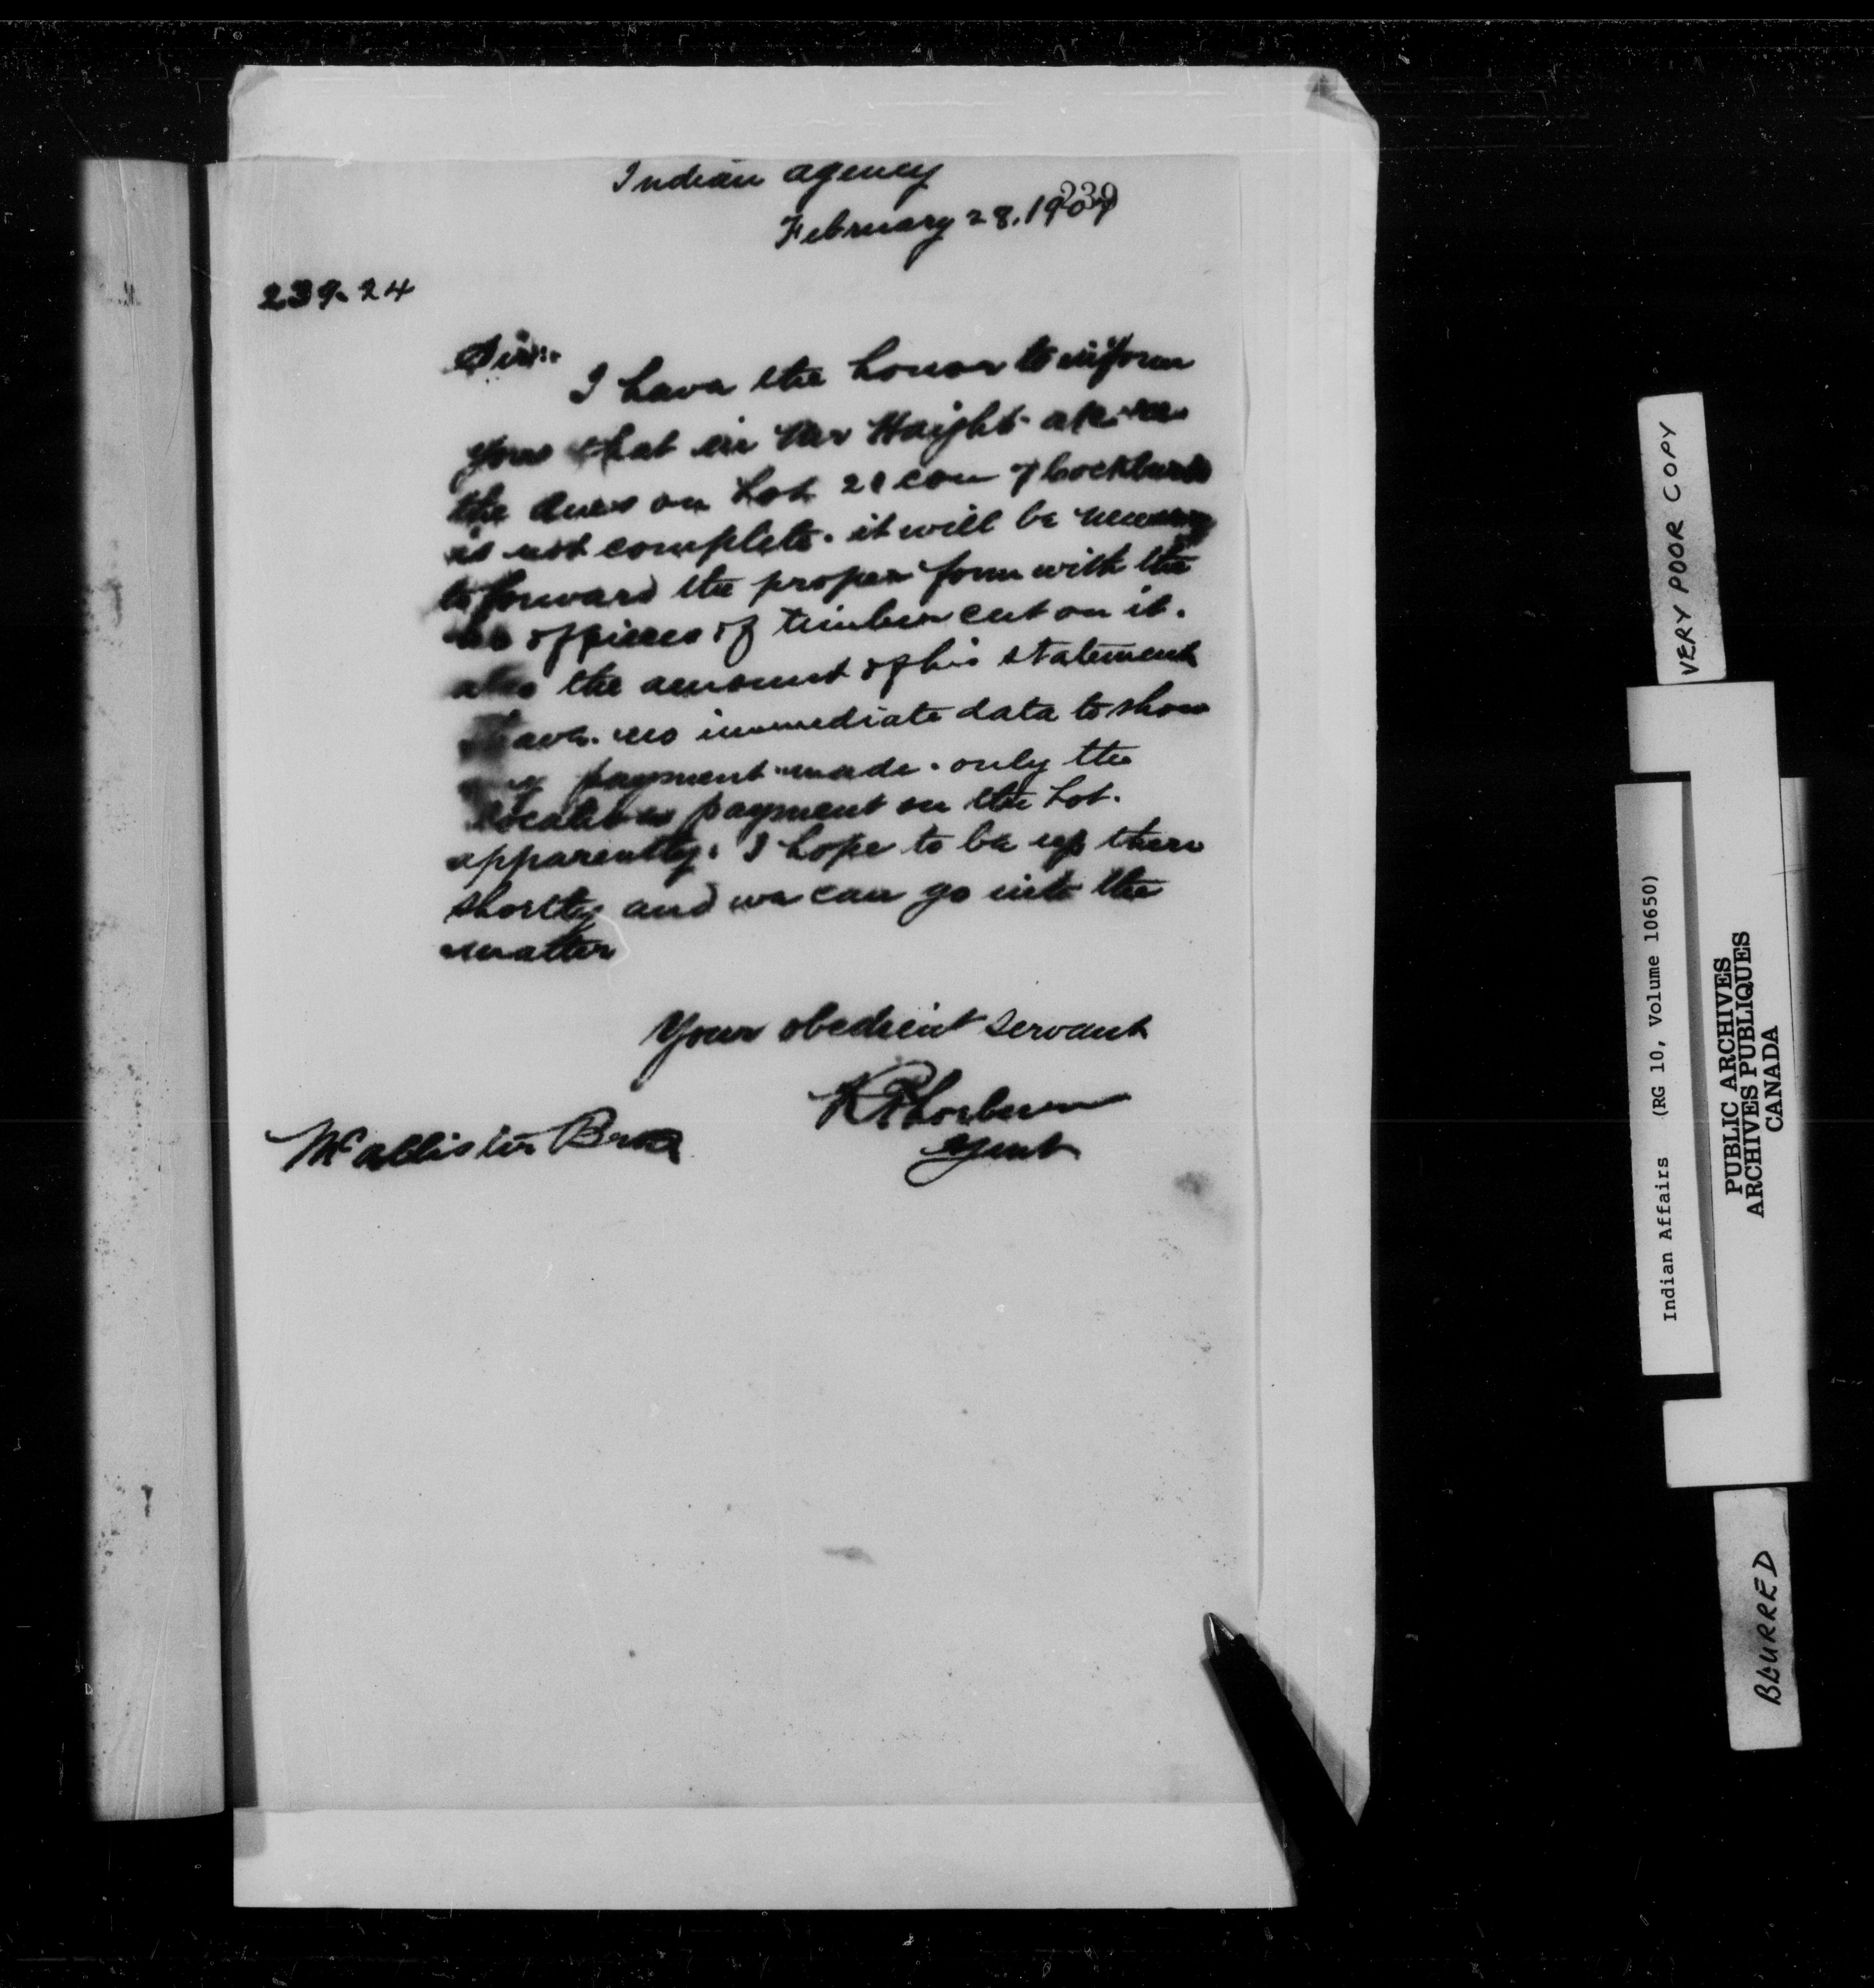 Indian agency
239
February 28, 1907
239-24
Sir:
I have the honor to inform
you that in Mr Haight
the dues on Lot 21 con 7 Cockburn
is not complete. it will be necessary
to forward the proper form with the
no of pieces of timber cut on it.
also the amount of his statement
have no immediate data to show
any payment made. only the
payment on the Lot.
apparently. I hope to be up there
shortly and we can go into the
matter
Your obedient servant
Agent
McCallister Bros
VERY POOR COPY
Indian Affairs (RG 10, Volume 10650)
PUBLIC ARCHIVES
ARCHIVES PUBLIQUES
CANADA
BLURRED